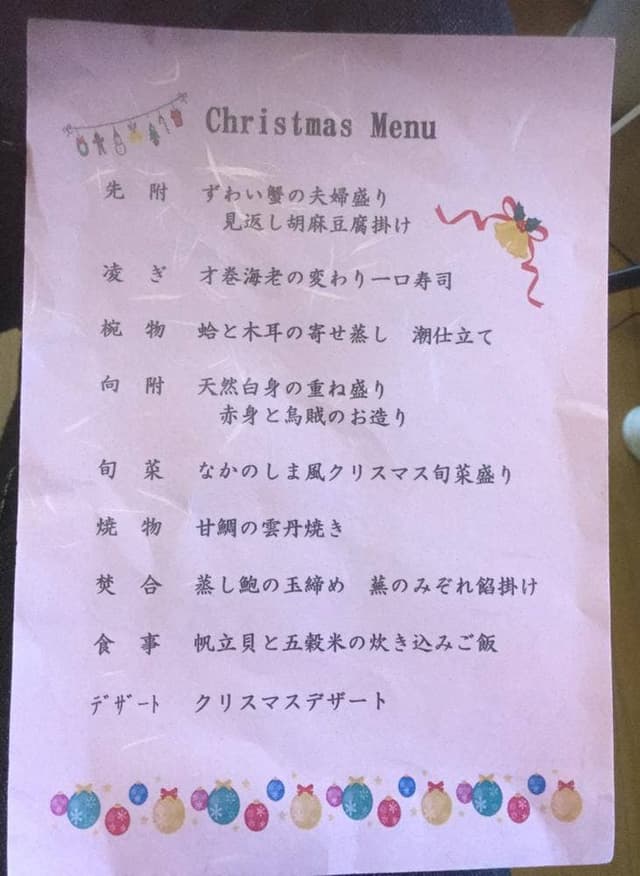 Christmas Menu
先 附 ずわい蟹の夫婦盛り
見返し胡麻豆腐掛け
凌 ぎ 才巻海老の変わり一口寿司
椀 物 蛤と木耳の寄せ蒸し 潮仕立て
向 附 天然白身の重ね盛り
赤身と烏賊のお造り
旬 菜 なかのしま風クリスマス旬菜盛り
焼 物 甘鯛の雲丹焼き
焚 合 蒸し鮑の玉締め 蕪のみぞれ餡掛け
食 事 帆立貝と五穀米の炊き込みご飯
デザート クリスマスデザート